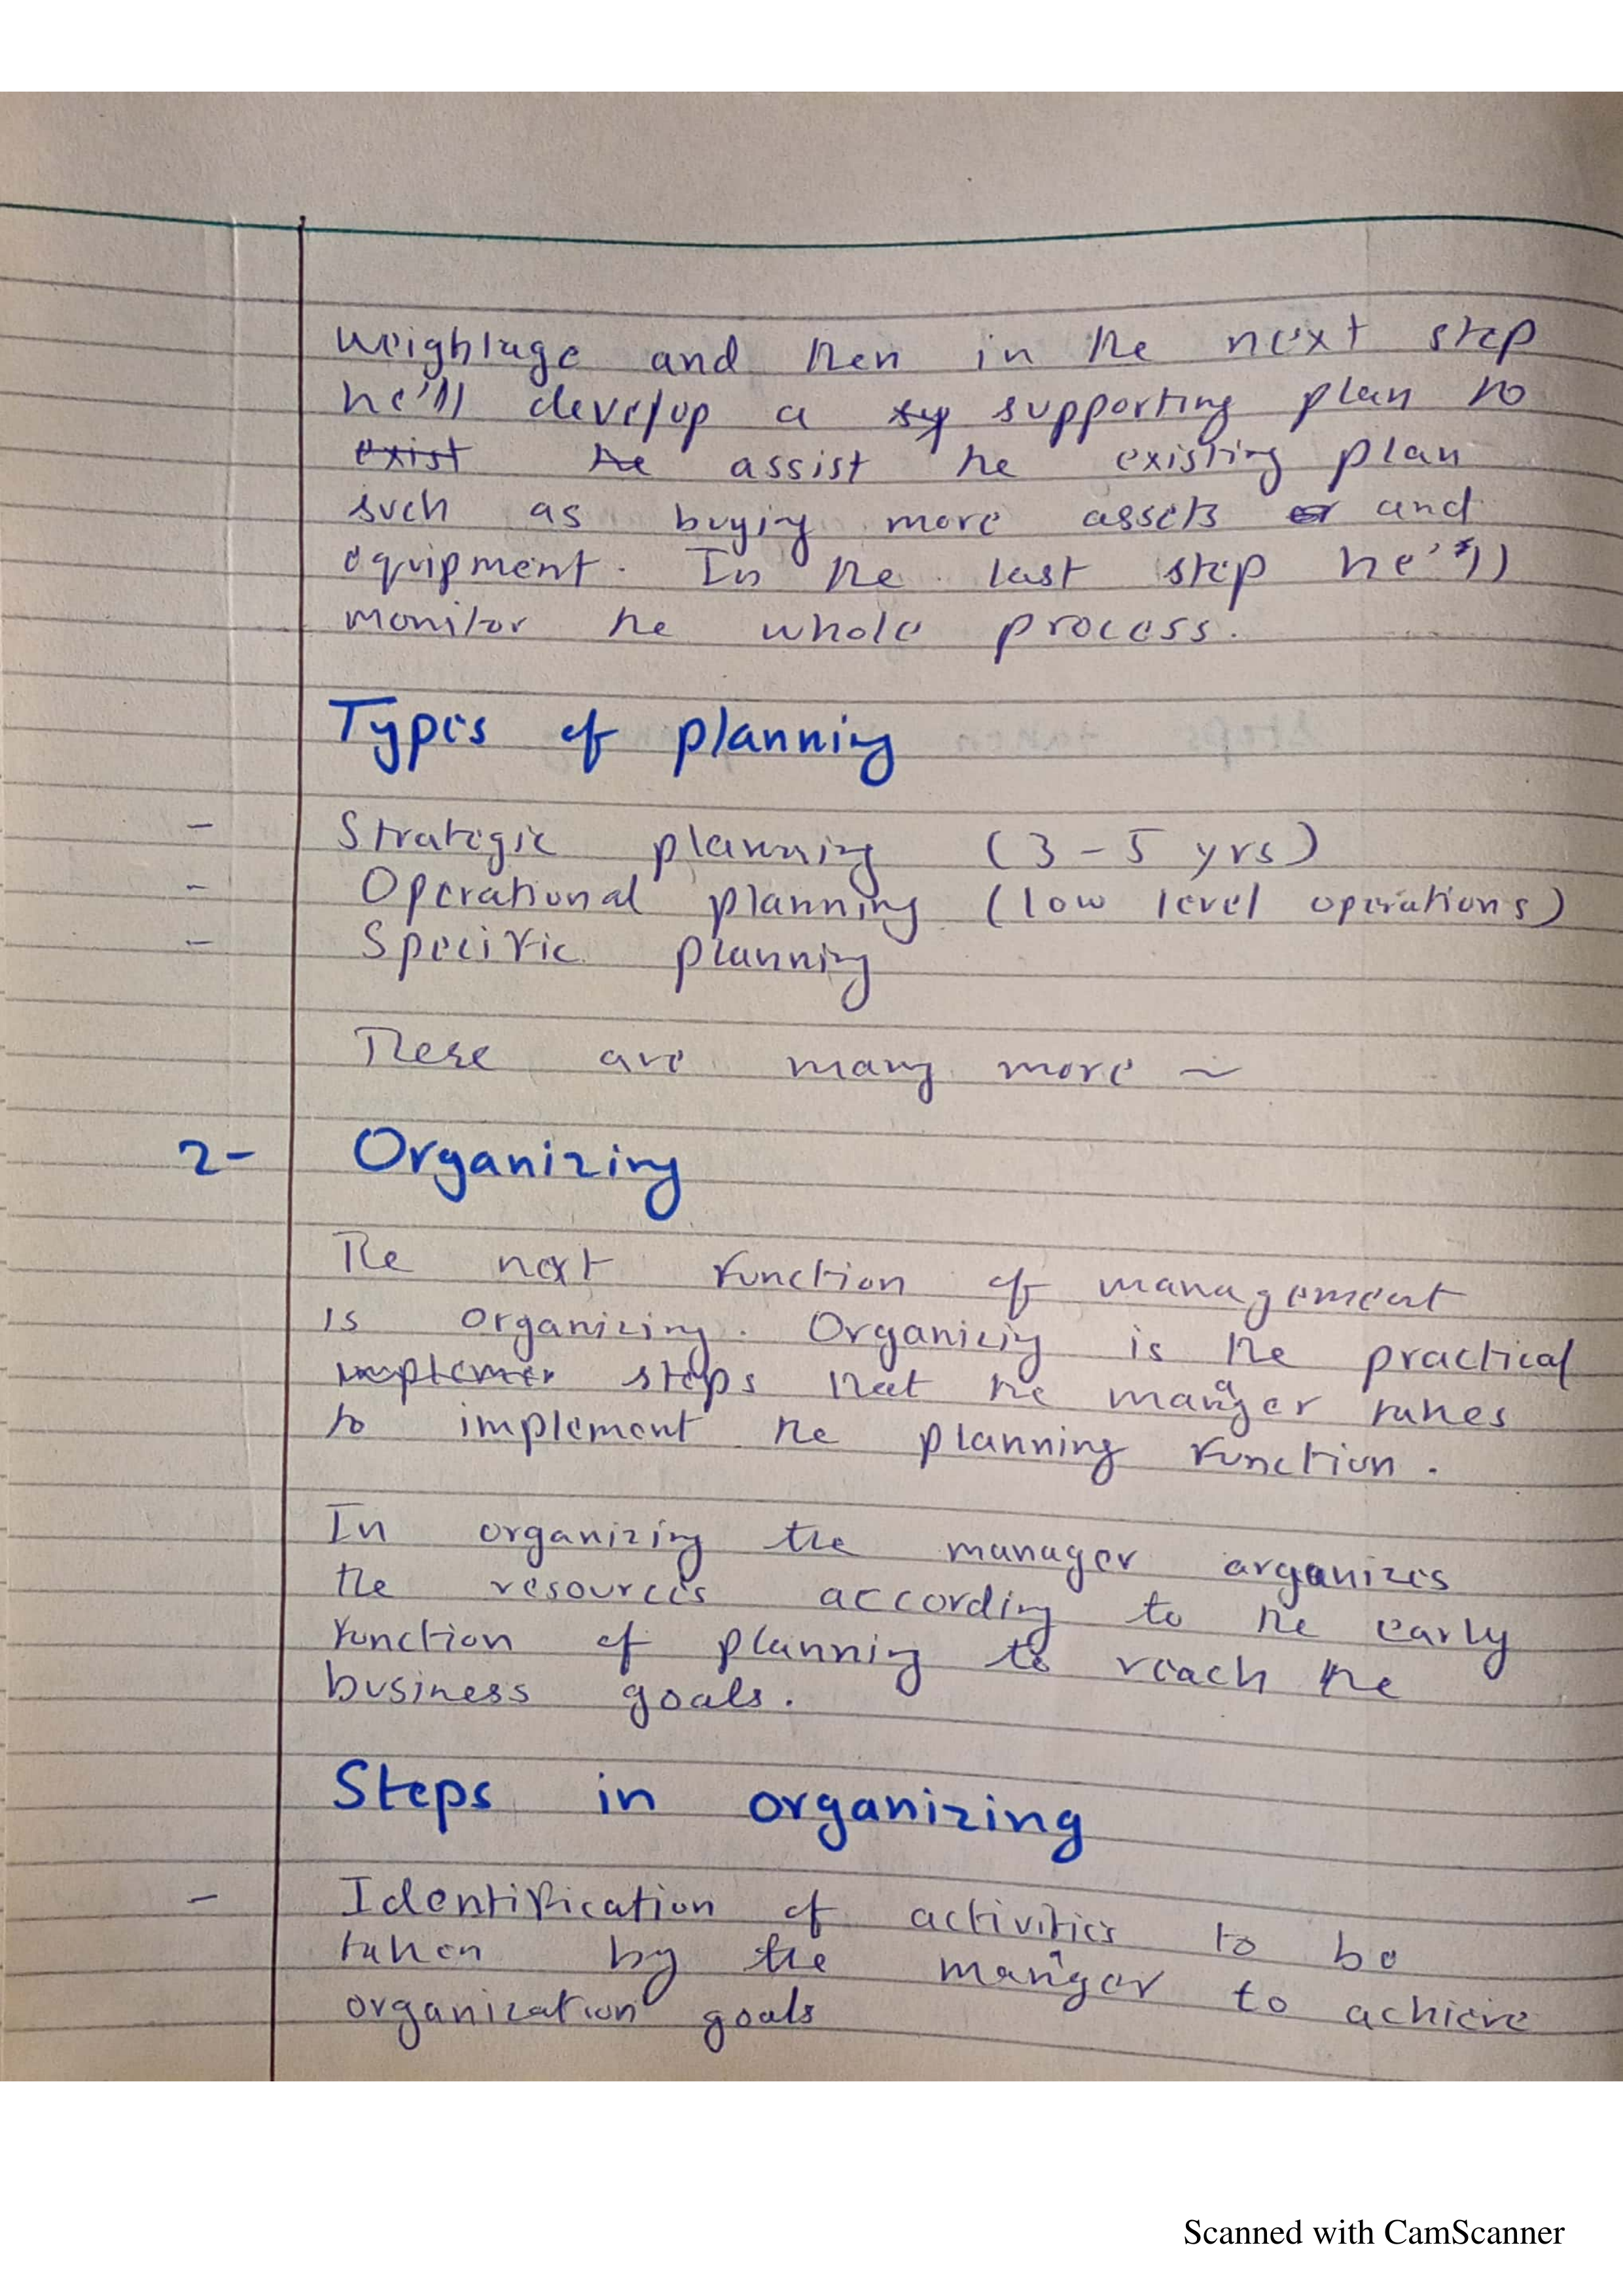 weightage and then in the next step
he'll develop a sy supporting plan to
exist the assist the existing plan
such as buying more assets or and
equipment. In the last step he'll
monitor the whole process.
Types of planning
- Strategic planning (3-5 yrs)
- Operational planning (low level operations)
- Specific planning
These are many more ~
2- Organizing
The next function of management
is organizing. Organizing is the practical
implemen steps that the manager takes
to implement the planning function.
In organizing the manager organizes
the resources according to the early
function of planning to reach the
business goals.
Steps in organizing
- Identification of activities to be
taken by the manager to achieve
organization goals
Scanned with CamScanner